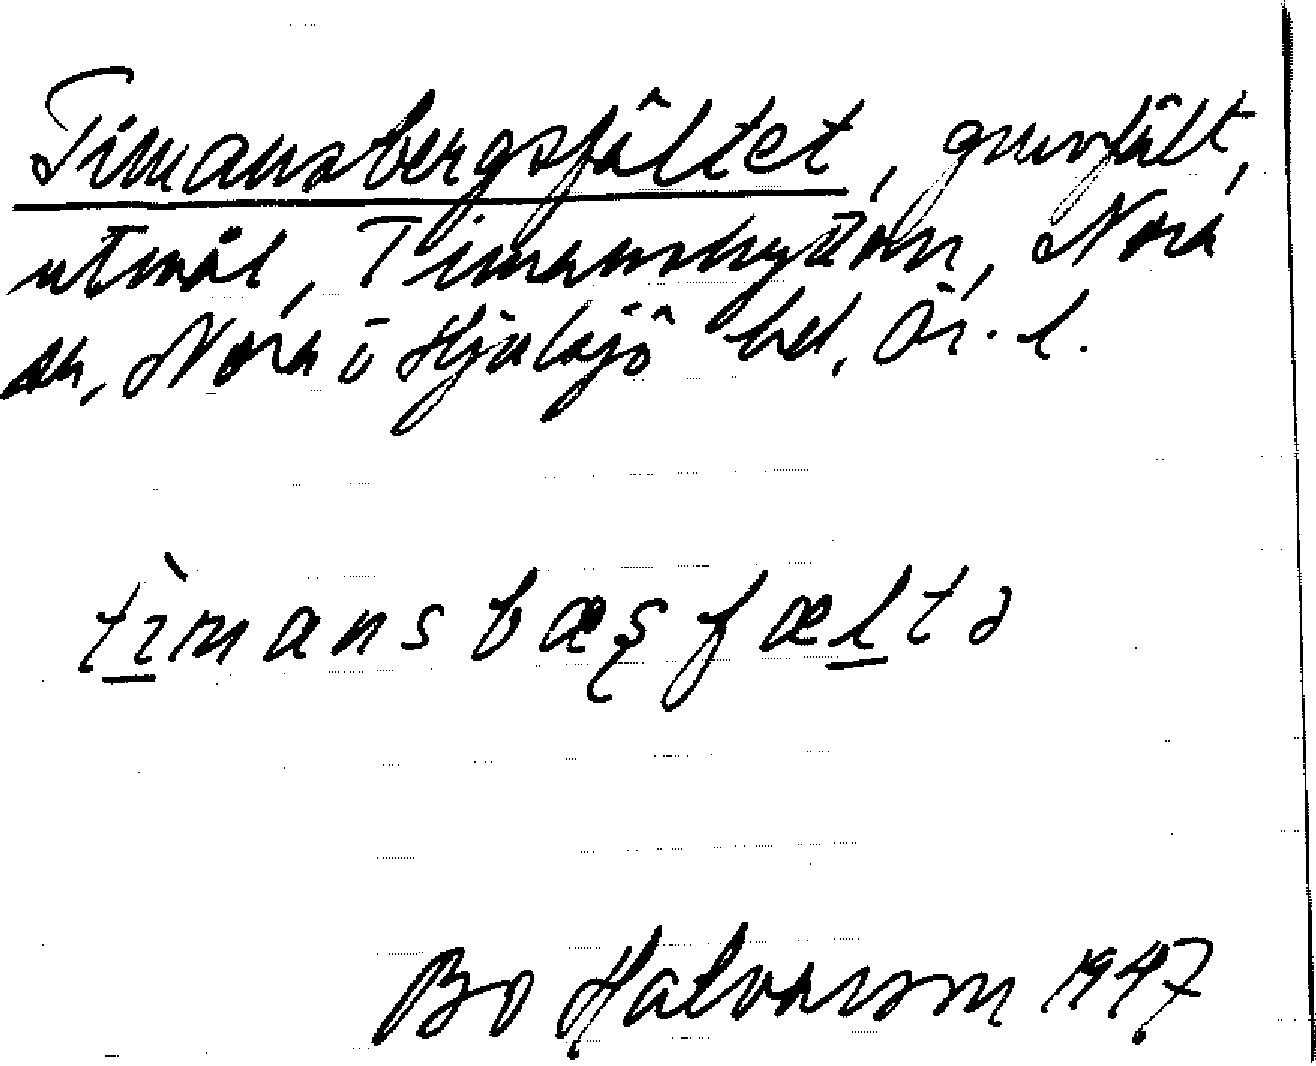 Timansbergsfältet, gruvfält,
utmål, Timanshyttan, Nora
sn, Nora o Hjulsjö bsl, Ör. l.
tìmans bæşfælta
Bo Halvarson 1947